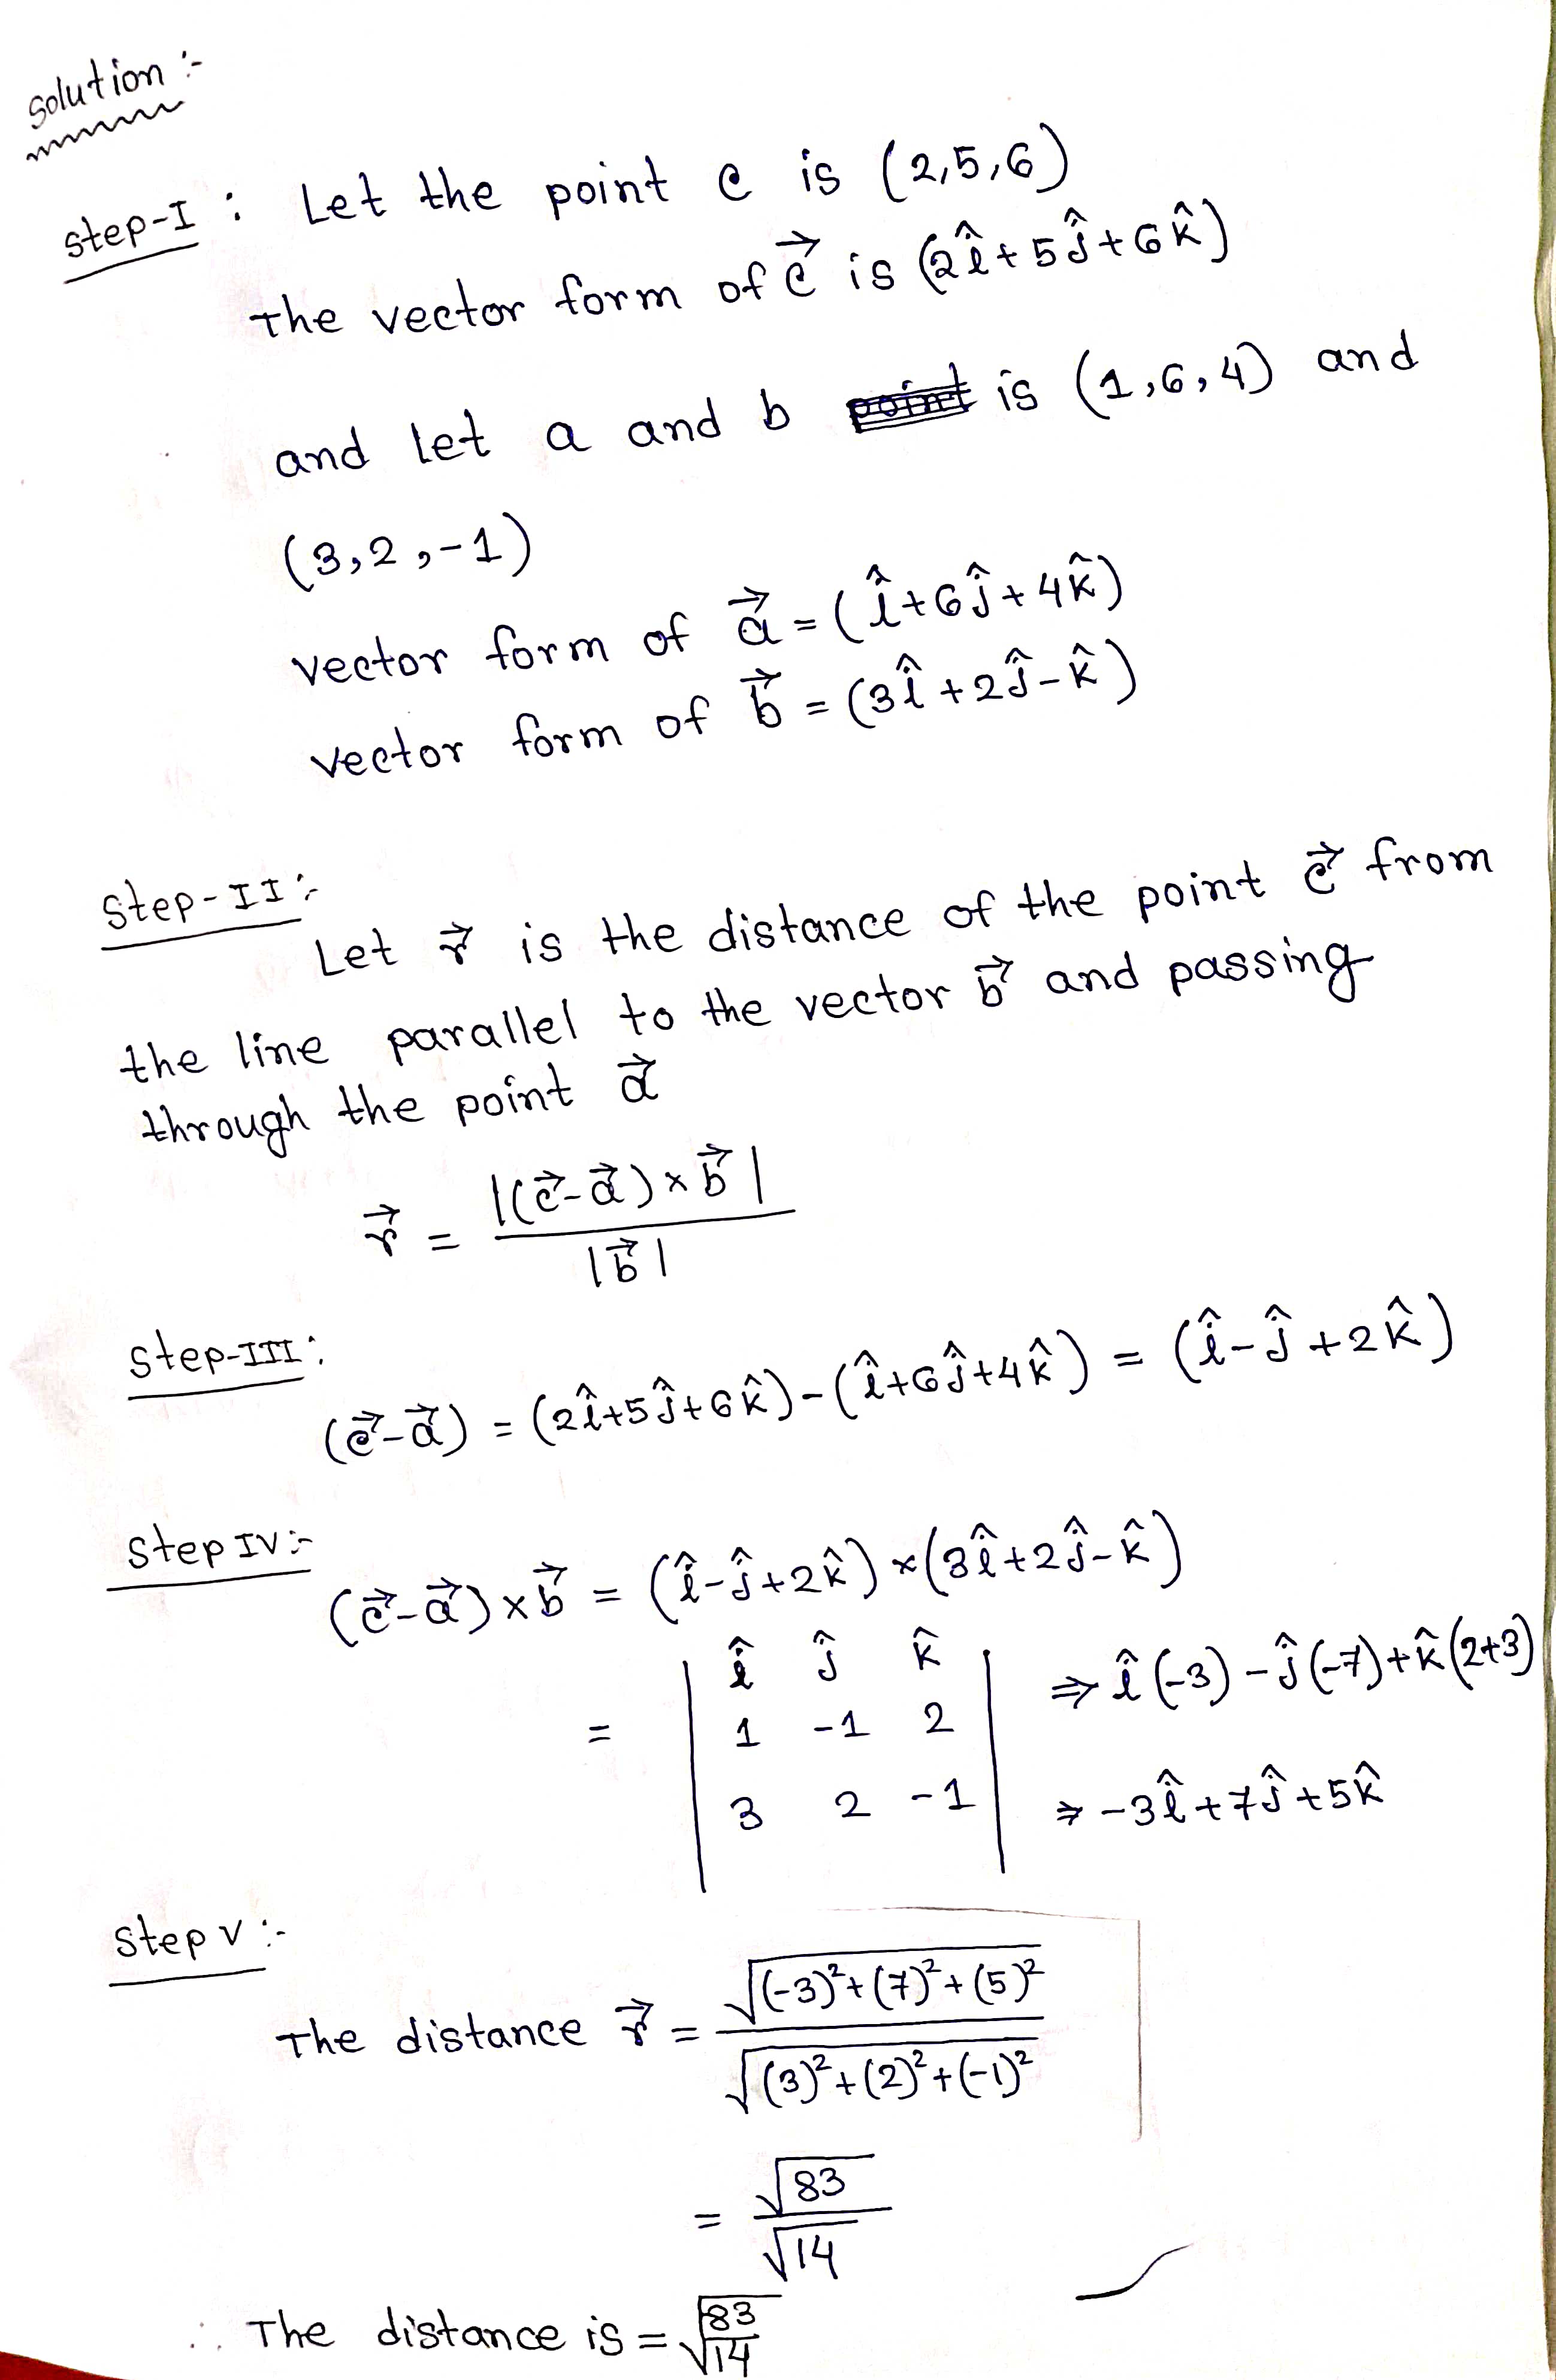 solution :-
step-I : Let the point c is (2,5,6)
The vector form of c⃗ is (2î+5ĵ+6k̂)
and let a and b is (1,6,4) and
(3,2,-1)
vector form of a⃗ = (î+6ĵ+4k̂)
vector form of b⃗ = (3î+2ĵ-k̂)
Step-II :-
Let r⃗ is the distance of the point c⃗ from
the line parallel to the vector b⃗ and passing
through the point a⃗
r⃗ = |(c⃗-a⃗)×b⃗| / |b⃗|
Step-III :
(c⃗-a⃗) = (2î+5ĵ+6k̂)-(î+6ĵ+4k̂) = (î-ĵ+2k̂)
Step IV :-
(c⃗-a⃗)×b⃗ = (î-ĵ+2k̂)×(3î+2ĵ-k̂)
= | î ĵ k̂ | ⇒ î(-3)-ĵ(-7)+k̂(2+3)
1 -1 2
3 2 -1 ⇒ -3î+7ĵ+5k̂
Step V :-
The distance r⃗ = √((-3)²+(7)²+(5)²) / √((3)²+(2)²+(-1)²)
= √83 / √14
∴ The distance is = √(83/14)